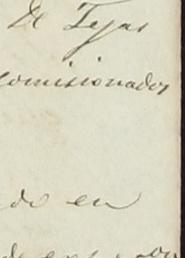 De Tejas
comisionados
do en